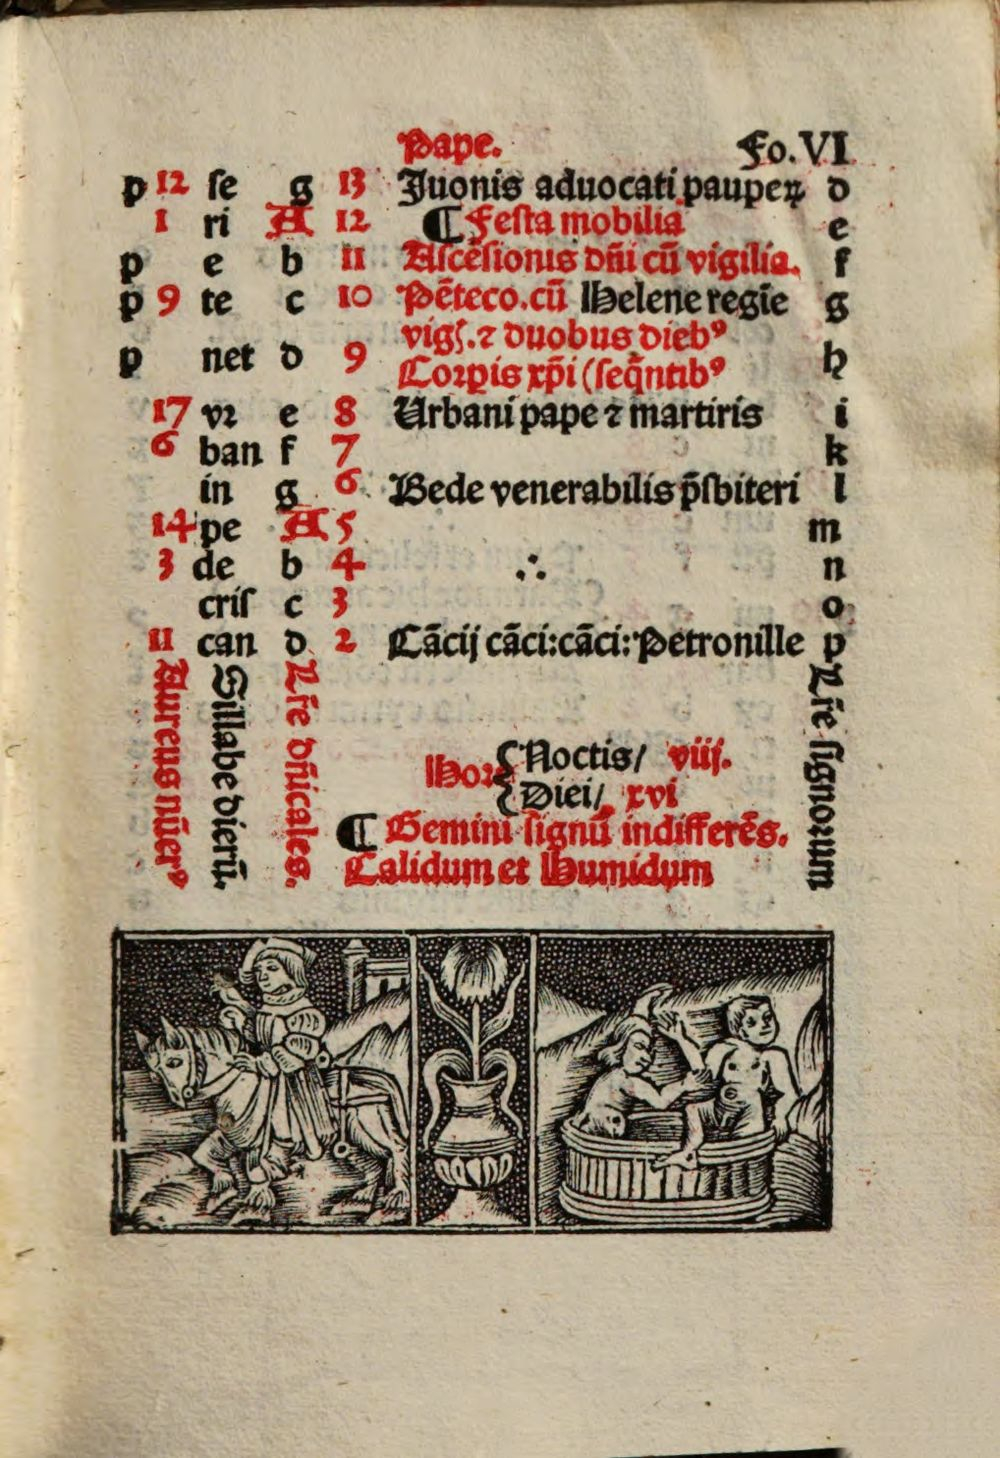 Pape. Fo. VI
p 12 se g 13 Juonis aduocati paupeꝝ d
1 ri A 12 ¶ Festa mobilia e
p e b 11 Ascēsionis dñi cū vigilia. f
p 9 te c 10 Pēteco. cū Helene regīe g
vigſ. ⁊ duobus diebꝰ
p net d 9 Corꝑis xp̄i (seq̄ntibꝰ h
17 vꝛ e 8 Urbani pape ⁊ martiris i
6 ban f 7 k
in g 6 Bede venerabilis p̄sbiteri l
14 pe A 5 m
3 de b 4 ∴ n
cris c 3 o
11 can d 2 Cācij cāci: cāci: Petronille p
Aureus nūerꝰ
Sillabe dierū.
Lr̄e dñicales.
Lr̄e signorum
Hore { Noctis / viij.
Diei / xvi
¶ Gemini signū indifferēs.
Calidum et Humidum